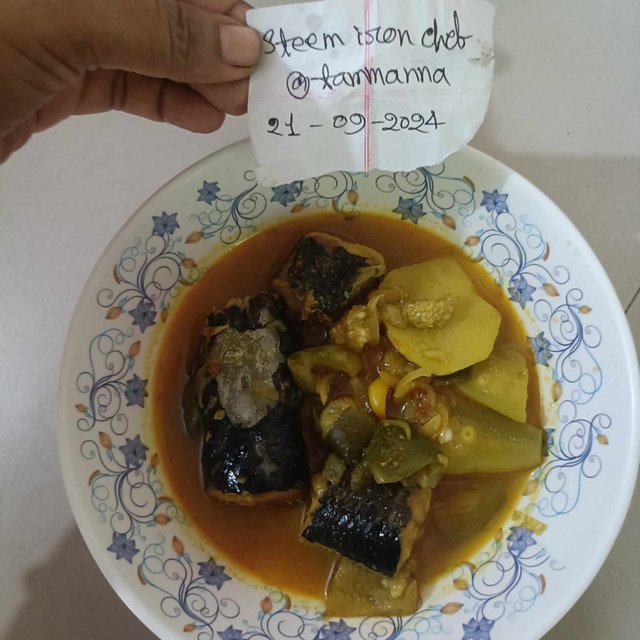 Steem iron chef
@tammanna
21-09-2024